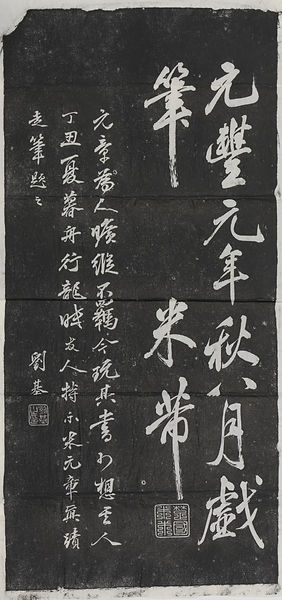 元豐元年秋八月戲
筆 米芾
元章為人曠縱不羈今玩其書可想其人
丁丑夏暮舟行龍 友人持示米元章真蹟
走筆題之
劉基